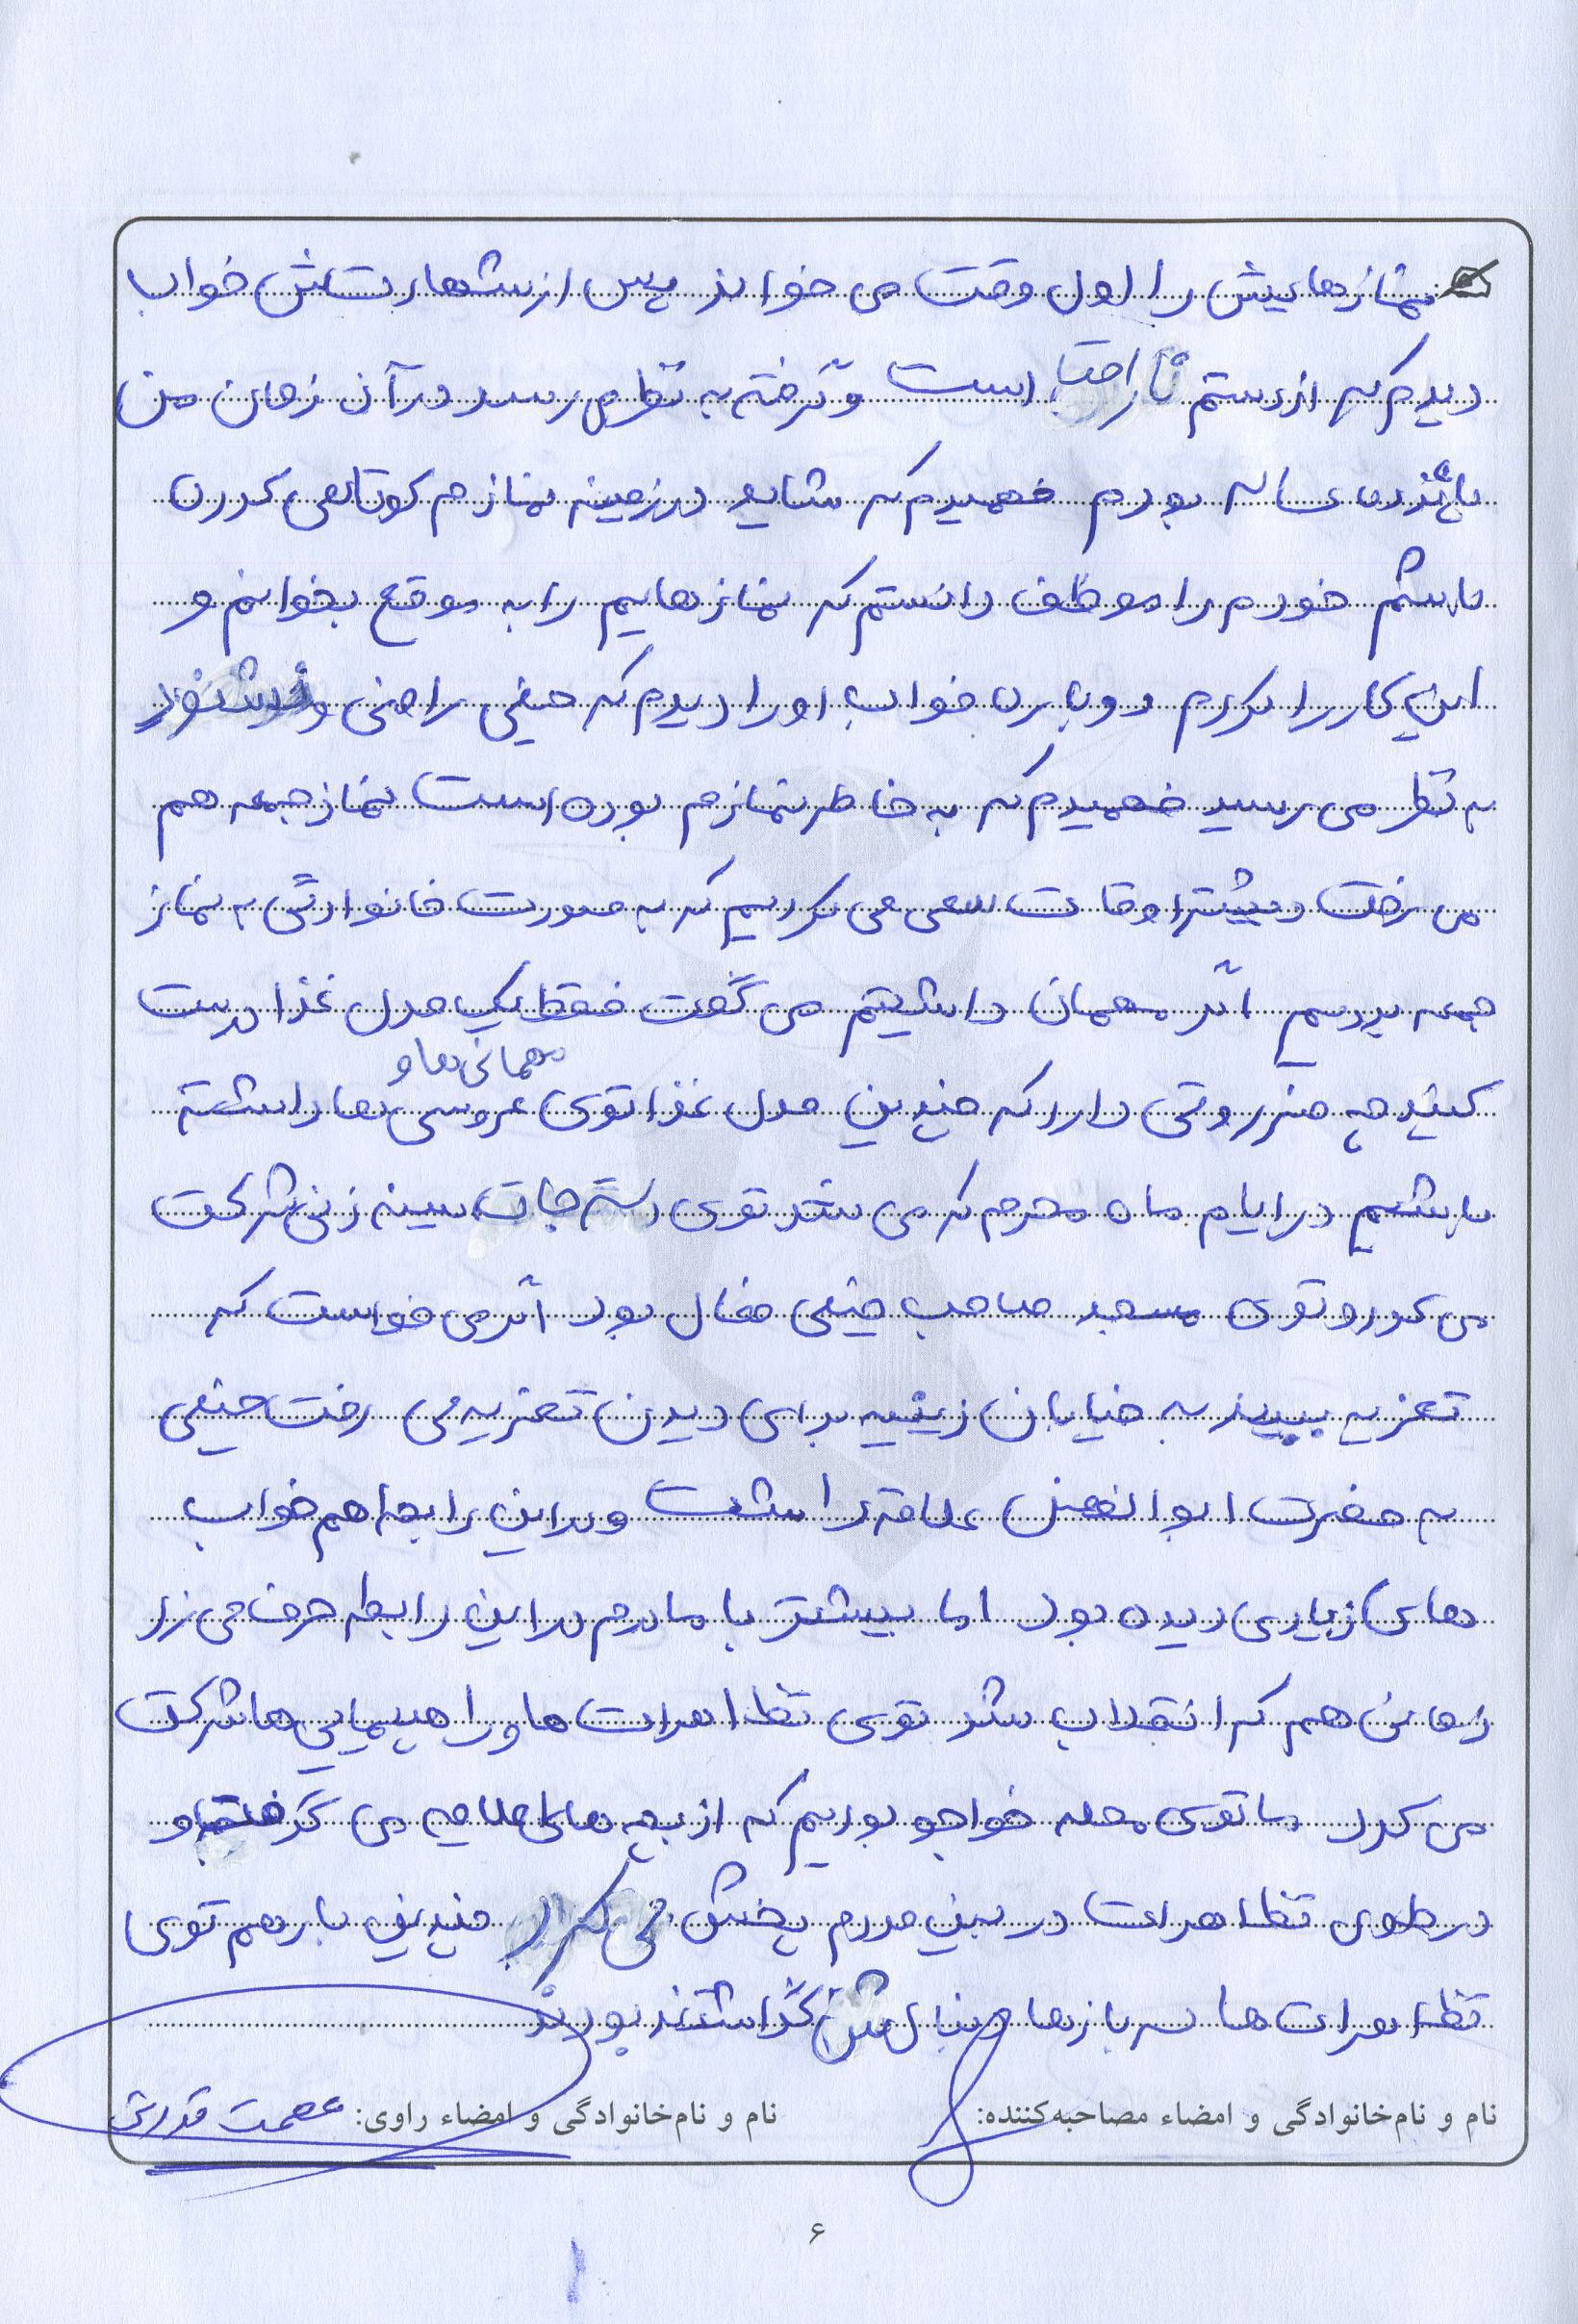 نمازهایش را اول وقت می خواند پس از شهادتش خواب
دیدم که از دستم ناراحت است و گرفته به نظر می رسد در آن زمان من
پانزده ساله بودم فهمیدم که شاید در زمینه نمازم کوتاهی کرده
باشم خودم را موظف دانستم که نمازهایم را به موقع بخوانم و
این کار را کردم دوباره خواب او را دیدم که خیلی راضی و خشنود
به نظر می رسید فهمیدم که به خاطر نمازم بوده است نماز جمعه هم
می رفت و بیشتر اوقات سعی می کردیم که به صورت خانوادگی به نماز
جمعه برویم اگر مهمان داشتیم می گفت فقط یک مدل غذا درست
مهمانی ها و
کنید چه ضرورتی دارد که چندین مدل غذا توی عروسی ها داشته
باشیم در ایام ماه محرم که می شد توی دسته جات سینه زنی شرکت
می کرد و توی مسجد صاحب خیلی فعال بود اگر می خواست که
تعزیه ببیند به خیابان زینبیه برای دیدن تعزیه می رفت خیلی
به حضرت ابوالفضل علاقه داشت و در این رابطه هم خواب
های زیادی دیده بود اما بیشتر با مادرم در این رابطه حرف می زد
زمانی هم که انقلاب شد توی تظاهرات ها و راهپیمایی ها شرکت
می کرد ما توی محله خواجو بودیم که از بچه ها اعلامیه می گرفت و
در طول تظاهرات در بین مردم پخش می کرد چندین بار هم توی
تظاهرات ها سربازها دنبالش گذاشته بودند
نام و نام‌خانوادگی و امضاء مصاحبه‌کننده:
نام و نام‌خانوادگی و امضاء راوی: عصمت قدرتی
۶